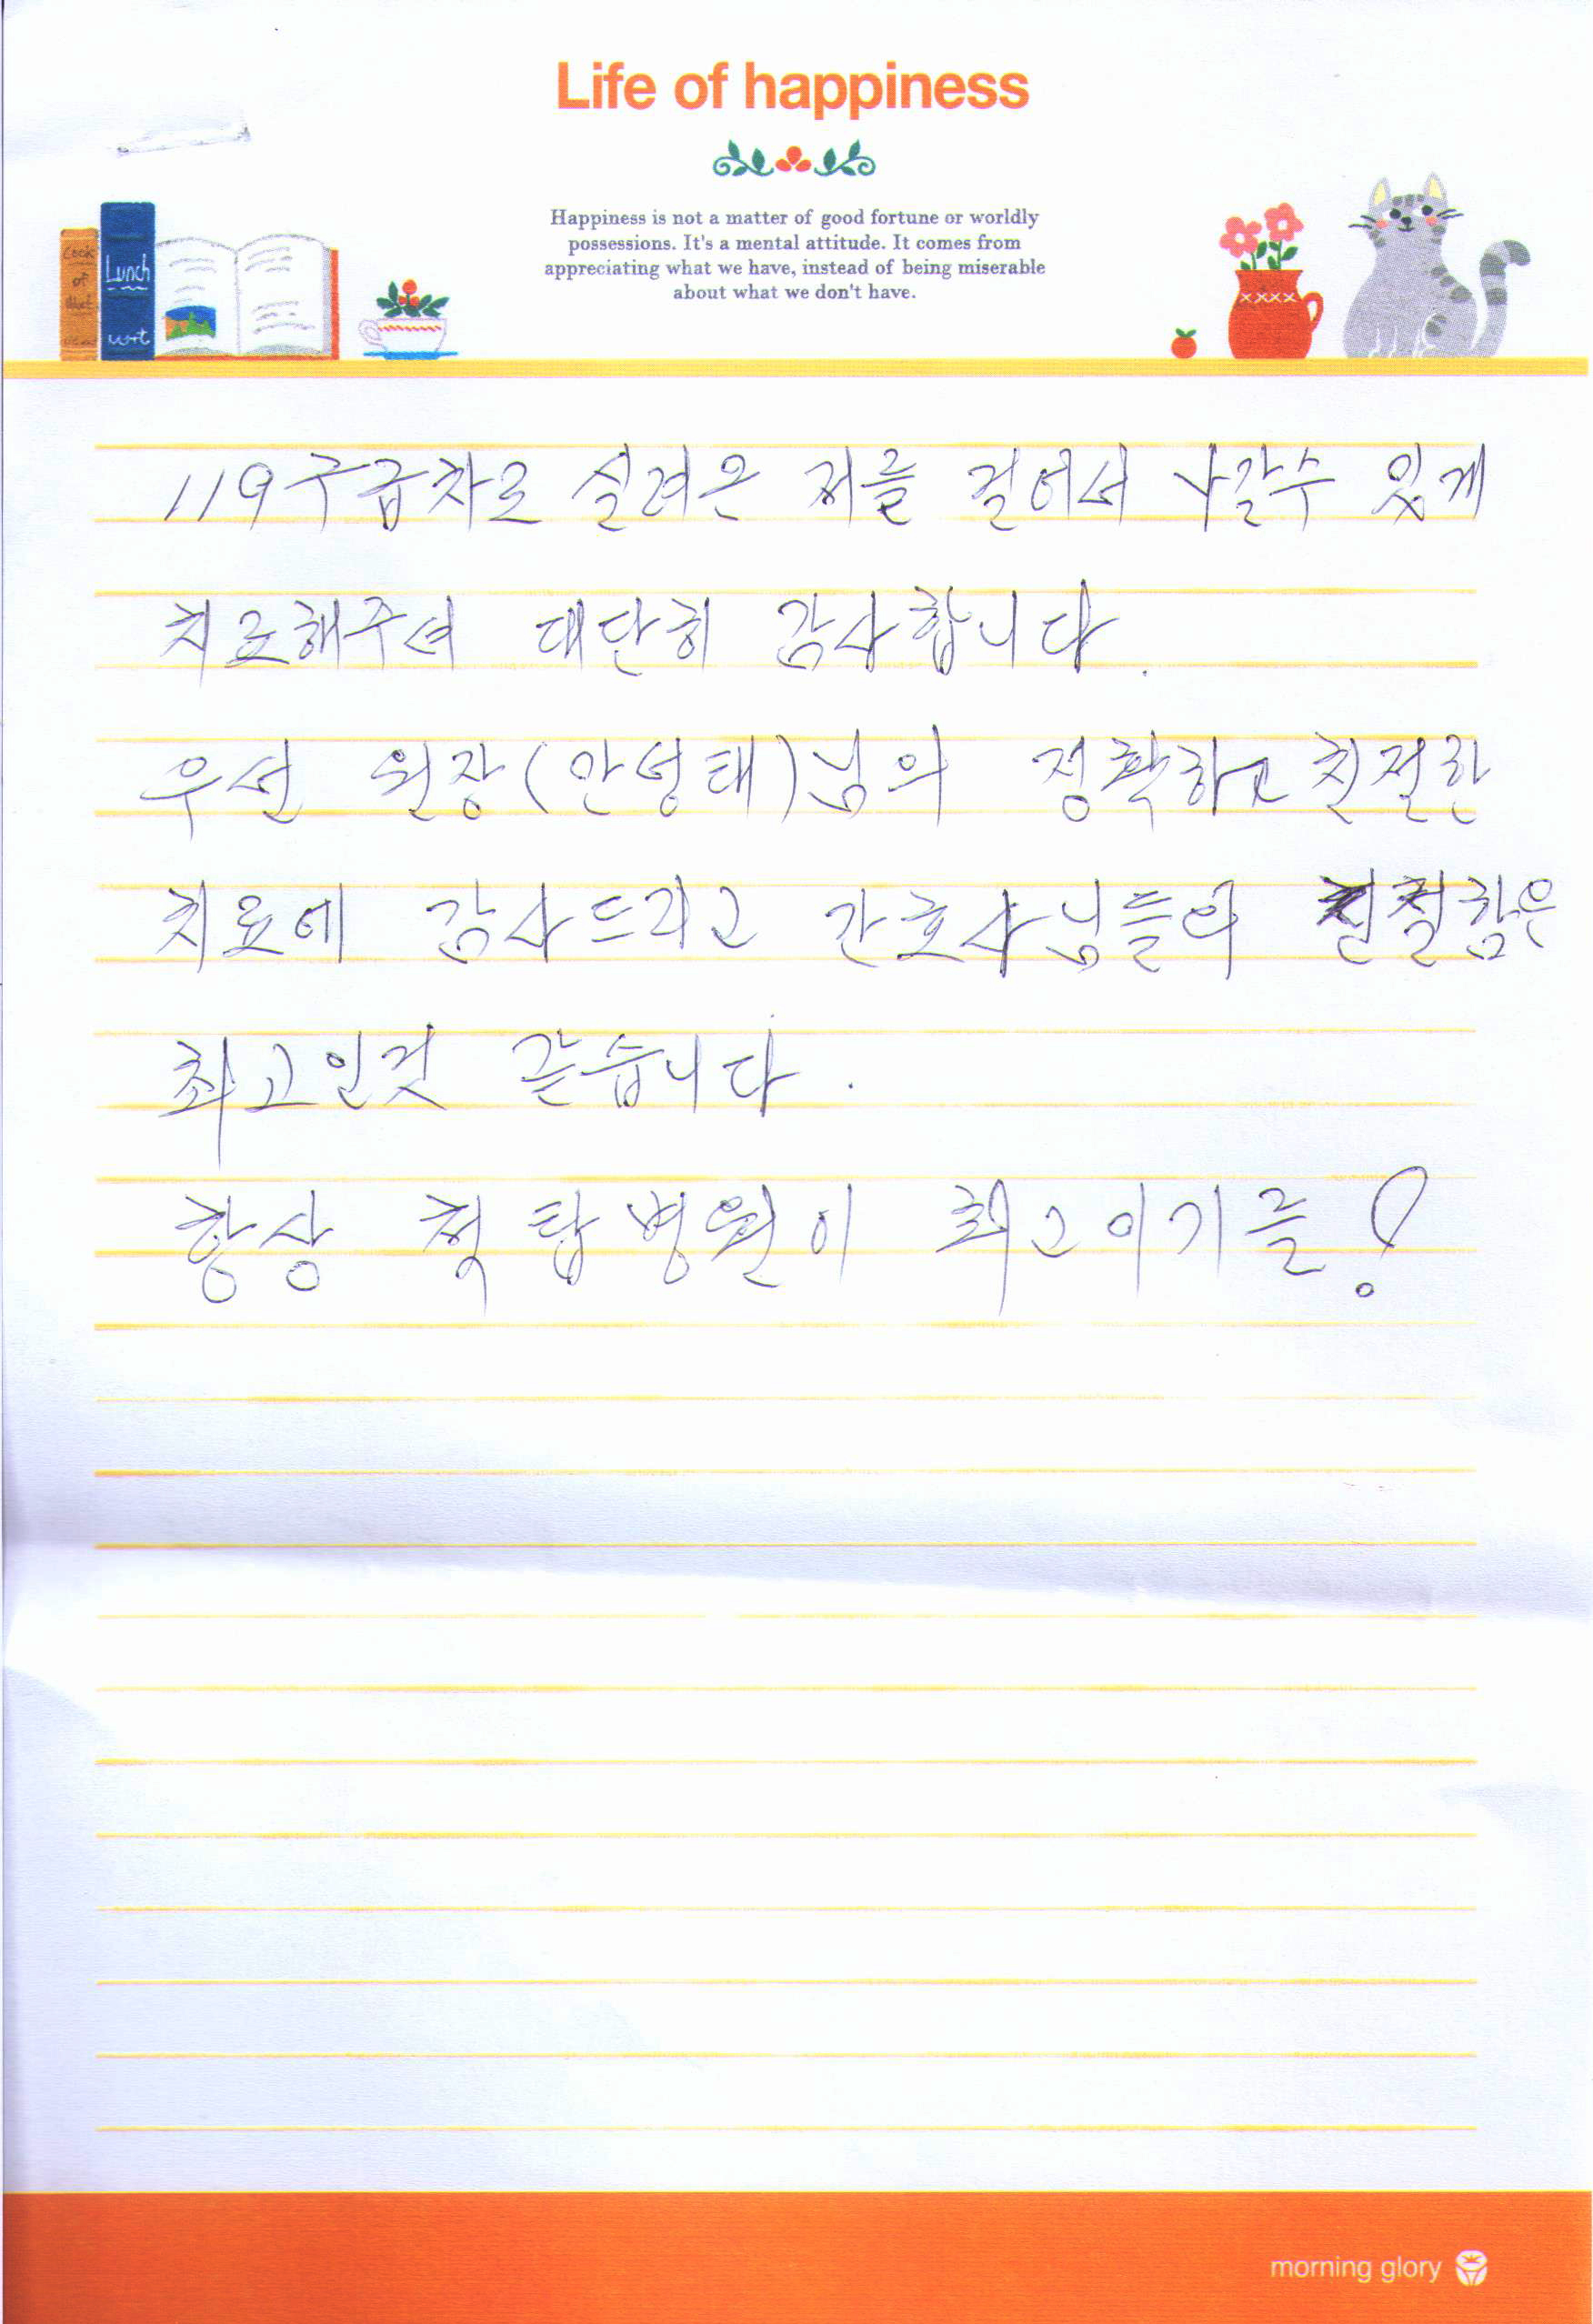 Life of happiness
Happiness is not a matter of good fortune or worldly
possessions. It's a mental attitude. It comes from
appreciating what we have, instead of being miserable
about what we don't have.
Cook
of
Lunch
119구급차로 실려온 저를 걸어서 나갈수 있게
치료해주셔 대단히 감사합니다.
우선 원장(안성태)님의 정확하고 친절한
치료에 감사드리고 간호사님들의 친절함은
최고인것 같습니다.
항상 척탑병원이 최고이기를!
morning glory